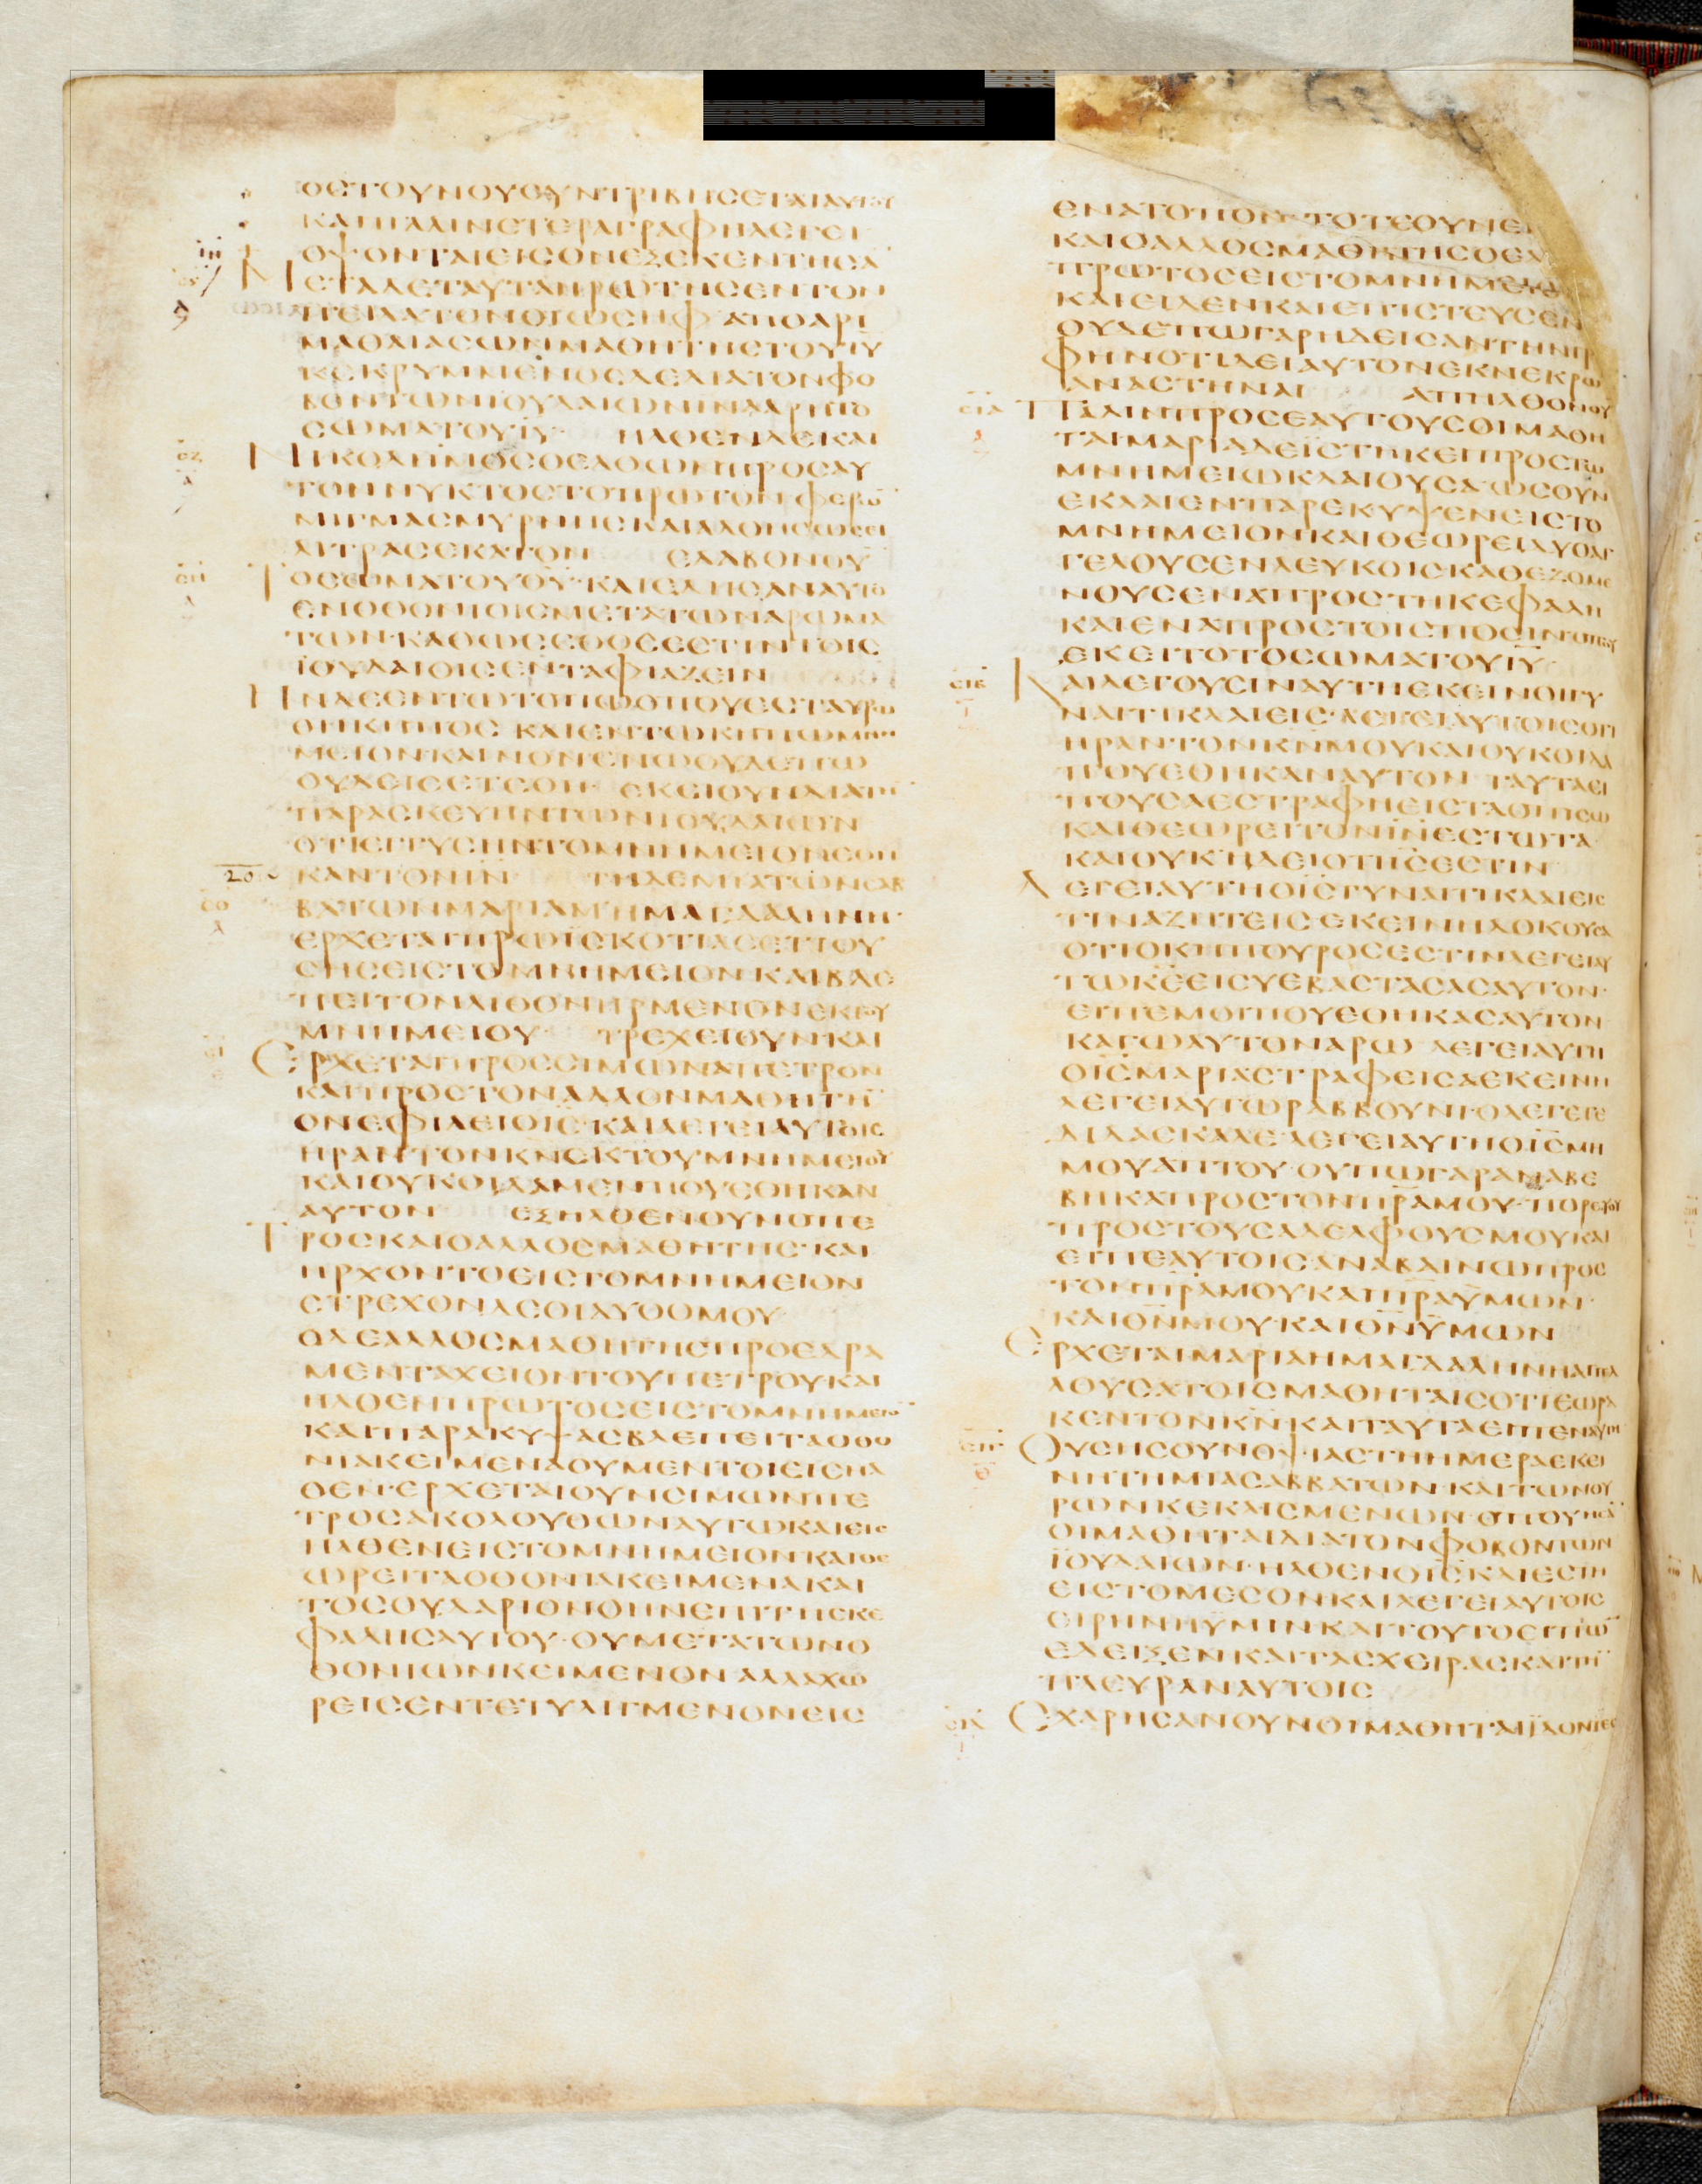 ΟCΤΟΥΝΟΥCΥΝΤΡΙΒΗCΕΤΑΙΑΥΤΟΥ
ΚΑΙΠΑΛΙΝΕΤΕΡΑΓΡΑΦΗΛΕΓΕΙ
ΟΨΟΝΤΑΙΕΙCΟΝΕΞΕΚΕΝΤΗCΑ
ΜΕΤΑΔΕΤΑΥΤΑΗΡΩΤΗCΕΝΤΟΝ
ΠΕΙΛΑΤΟΝΟΙΩCΗΦ ΑΠΟΑΡΙ
ΜΑΘΑΙΑCΩΝΜΑΘΗΤΗCΤΟΥΙΥ
ΚΕΚΡΥΜΜΕΝΟCΔΕΔΙΑΤΟΝΦΟ
ΒΟΝΤΩΝΙΟΥΔΑΙΩΝΙΝΑΑΡΗΤΟ
CΩΜΑΤΟΥΙΥ ΗΛΘΕΝΔΕΚΑΙ
ΝΙΚΟΔΗΜΟCΟΕΛΘΩΝΠΡΟCΑΥ
ΤΟΝΝΥΚΤΟCΤΟΠΡΩΤΟΝΦΕΡΩ
ΜΙΓΜΑCΜΥΡΝΗCΚΑΙΑΛΟΗCΩCΕΙ
ΛΙΤΡΑCΕΚΑΤΟΝ ΕΛΑΒΟΝΟΥ
ΤΟCΩΜΑΤΟΥΘΥ·ΚΑΙΕΔΗCΑΝΑΥΤΟ
ΕΝΟΘΟΝΙΟΙCΜΕΤΑΤΩΝΑΡΩΜΑ
ΤΩΝ·ΚΑΘΩCΕΘΟCΕCΤΙΝΤΟΙC
ΙΟΥΔΑΙΟΙCΕΝΤΑΦΙΑΖΕΙΝ
ΗΝΔΕΕΝΤΩΤΟΠΩΟΠΟΥΕCΤΑΥΡΩ
ΘΗΚΗΠΟC ΚΑΙΕΝΤΩΚΗΠΩΜΝΗ
ΜΕΙΟΝΚΑΙΝΟΝΕΝΩΟΥΔΕΠΩ
ΟΥΔΕΙCΕΤΕΘΗ· ΕΚΕΙΟΥΝΔΙΑΤΗ
ΠΑΡΑCΚΕΥΗΝΤΩΝΙΟΥΔΑΙΩΝ
ΟΤΙΕΓΓΥCΗΝΤΟΜΝΗΜΕΙΟΝΕΘΗ
20 ΚΑΝΤΟΝΙΝ ΤΗΔΕΜΙΑΤΩΝCΑΒ
ΒΑΤΩΝΜΑΡΙΑΜΗΜΑΓΔΑΛΗΝΗ
ΕΡΧΕΤΑΙΠΡΩΙCΚΟΤΙΑCΕΤΙΟΥ
CΗCΕΙCΤΟΜΝΗΜΕΙΟΝΚΑΙΒΛΕ
ΠΕΙΤΟΝΛΙΘΟΝΗΡΜΕΝΟΝΕΚΤΟΥ
ΜΝΗΜΕΙΟΥ ΤΡΕΧΕΙΟΥΝΚΑΙ
ΕΡΧΕΤΑΙΠΡΟCCΙΜΩΝΑΠΕΤΡΟΝ
ΚΑΙΠΡΟCΤΟΝΑΛΛΟΝΜΑΘΗΤΗ
ΟΝΕΦΙΛΕΙΟΙC·ΚΑΙΛΕΓΕΙΑΥΤΟΙC
ΗΡΑΝΤΟΝΚΝΕΚΤΟΥΜΝΗΜΕΙΟΥ
ΚΑΙΟΥΚΟΙΔΑΜΕΝΠΟΥΕΘΗΚΑΝ
ΑΥΤΟΝ ΕΞΗΛΘΕΝΟΥΝΟΠΕ
ΤΡΟCΚΑΙΟΑΛΛΟCΜΑΘΗΤΗC·ΚΑΙ
ΗΡΧΟΝΤΟΕΙCΤΟΜΝΗΜΕΙΟΝ
ΕΤΡΕΧΟΝΔΕΟΙΔΥΟΟΜΟΥ
ΟΔΕΑΛΛΟCΜΑΘΗΤΗCΠΡΟΕΔΡΑ
ΜΕΝΤΑΧΕΙΟΝΤΟΥΠΕΤΡΟΥΚΑΙ
ΗΛΘΕΝΠΡΩΤΟCΕΙCΤΟΜΝΗΜΕΙΟ
ΚΑΙΠΑΡΑΚΥΨΑCΒΛΕΠΕΙΤΑΟΘΟ
ΝΙΑΚΕΙΜΕΝΑΟΥΜΕΝΤΟΙΕΙCΗΛ
ΘΕΝ·ΕΡΧΕΤΑΙΟΥΝCΙΜΩΝΠΕ
ΤΡΟCΑΚΟΛΟΥΘΩΝΑΥΤΩΚΑΙΕΙC
ΗΛΘΕΝΕΙCΤΟΜΝΗΜΕΙΟΝΚΑΙΘΕ
ΩΡΕΙΤΑΟΘΟΝΙΑΚΕΙΜΕΝΑΚΑΙ
ΤΟCΟΥΔΑΡΙΟΝΟΗΝΕΠΙΤΗCΚΕ
ΦΑΛΗCΑΥΤΟΥ·ΟΥΜΕΤΑΤΩΝΟ
ΘΟΝΙΩΝΚΕΙΜΕΝΟΝΑΛΛΑΧΩ
ΡΕΙCΕΝΤΕΤΥΛΙΓΜΕΝΟΝΕΙC
ΕΝΑΤΟΠΟΝ·ΤΟΤΕΟΥΝΕΙ
ΚΑΙΟΑΛΛΟCΜΑΘΗΤΗCΟΕΛ
ΠΡΩΤΟCΕΙCΤΟΜΝΗΜΕΙΟ
ΚΑΙΕΙΔΕΝΚΑΙΕΠΙCΤΕΥCΕΝ
ΟΥΔΕΠΩΓΑΡΗΔΕΙCΑΝΤΗΝΓΡ
ΦΗΝΟΤΙΔΕΙΑΥΤΟΝΕΚΝΕΚΡΩ
ΑΝΑCΤΗΝΑΙ ΑΠΗΛΘΟΝΟΥ
ΠΑΛΙΝΠΡΟCΕΑΥΤΟΥCΟΙΜΑΘΗ
ΤΑΙΜΑΡΙΑΔΕΙCΤΗΚΕΙΠΡΟCΤΩ
ΜΝΗΜΕΙΩΚΛΑΙΟΥCΑ·ΩCΟΥΝ
ΕΚΛΑΙΕΝΠΑΡΕΚΥΨΕΝΕΙCΤΟ
ΜΝΗΜΕΙΟΝΚΑΙΘΕΩΡΕΙΔΥΟΑΓ
ΓΕΛΟΥCΕΝΛΕΥΚΟΙCΚΑΘΕΖΟΜΕ
ΝΟΥCΕΝΑΠΡΟCΤΗΚΕΦΑΛΗ
ΚΑΙΕΝΑΠΡΟCΤΟΙCΠΟCΙΝΟΠΟΥ
ΕΚΕΙΤΟΤΟCΩΜΑΤΟΥΙΥ
ΚΑΙΛΕΓΟΥCΙΝΑΥΤΗΕΚΕΙΝΟΙΓΥ
ΝΑΙΤΙΚΛΑΙΕΙC·ΛΕΓΕΙΑΥΤΟΙCΟΤΙ
ΗΡΑΝΤΟΝΚΝΜΟΥΚΑΙΟΥΚΟΙΔΑ
ΠΟΥΕΘΗΚΑΝΑΥΤΟΝ ΤΑΥΤΑΕΙ
ΠΟΥCΑΕCΤΡΑΦΗΕΙCΤΑΟΠΙCΩ
ΚΑΙΘΕΩΡΕΙΤΟΝΙΝΕCΤΩΤΑ
ΚΑΙΟΥΚΗΔΕΙΟΤΙΙCΕCΤΙΝ
ΛΕΓΕΙΑΥΤΗΟΙCΓΥΝΑΙΤΙΚΛΑΙΕΙC
ΤΙΝΑΖΗΤΕΙC·ΕΚΕΙΝΗΔΟΚΟΥCΑ
ΟΤΙΟΚΗΠΟΥΡΟCΕCΤΙΝΛΕΓΕΙΑΥ
ΤΩΚΕΕΙCΥΕΒΑCΤΑCΑCΑΥΤΟΝ
ΕΙΠΕΜΟΙΠΟΥΕΘΗΚΑCΑΥΤΟΝ
ΚΑΓΩΑΥΤΟΝΑΡΩ ΛΕΓΕΙΑΥΤΗ
ΟΙCΜΑΡΙΑCΤΡΑΦΕΙCΑΕΚΕΙΝΗ
ΛΕΓΕΙΑΥΤΩΡΑΒΒΟΥΝΙ·ΟΛΕΓΕΤΕ
ΔΙΔΑCΚΑΛΕΛΕΓΕΙΑΥΤΗΟΙCΜΗ
ΜΟΥΑΠΤΟΥ·ΟΥΠΩΓΑΡΑΝΑΒΕ
ΒΗΚΑΠΡΟCΤΟΝΠΡΑΜΟΥ·ΠΟΡΕΥΟΥ
ΠΡΟCΤΟΥCΑΔΕΛΦΟΥCΜΟΥΚΑΙ
ΕΙΠΕΑΥΤΟΙCΑΝΑΒΑΙΝΩΠΡΟC
ΤΟΝΠΡΑΜΟΥΚΑΙΠΡΑΥΜΩΝ
ΚΑΙΘΝΜΟΥ·ΚΑΙΘΝΥΜΩΝ
ΕΡΧΕΤΑΙΜΑΡΙΑΗΜΑΓΔΑΛΗΝΗΑΠΑΓΓΕΛ
ΛΟΥCΑΤΟΙCΜΑΘΗΤΑΙCΟΤΙΕΩΡΑ
ΚΕΝΤΟΝΚΝ·ΚΑΙΤΑΥΤΑΕΙΠΕΝΑΥΤΗ
ΟΥCΗCΟΥΝΟΨΙΑCΤΗΗΜΕΡΑΕΚΕΙ
ΝΗΤΗΜΙΑCΑΒΒΑΤΩΝ·ΚΑΙΤΩΝΘΥ
ΡΩΝΚΕΚΛΙCΜΕΝΩΝ·ΟΠΟΥΗCΑ
ΟΙΜΑΘΗΤΑΙΔΙΑΤΟΝΦΟΒΟΝΤΩΝ
ΙΟΥΔΑΙΩΝ·ΗΛΘΕΝΟΙCΚΑΙΕCΤΗ
ΕΙCΤΟΜΕCΟΝΚΑΙΛΕΓΕΙΑΥΤΟΙC
ΕΙΡΗΝΗΥΜΙΝΚΑΙΤΟΥΤΟΕΙΠΩ
ΕΔΕΙΞΕΝΚΑΙΤΑCΧΕΙΡΑCΚΑΙΤΗ
ΠΛΕΥΡΑΝΑΥΤΟΙC
ΕΧΑΡΗCΑΝΟΥΝΟΙΜΑΘΗΤΑΙΙΔΟΝΤΕC